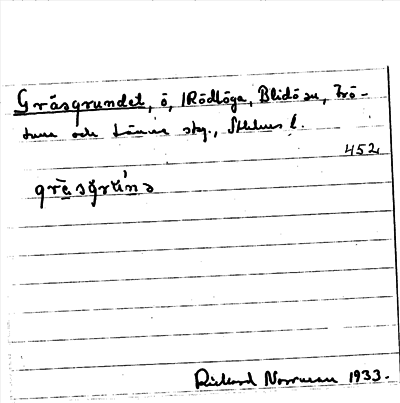 Gräsgrundet, ö, i Rödlöga, Blidö sn, Frö-
tuna och Länna skg., Sthlms l.
452
Rickard Norrman 1933.